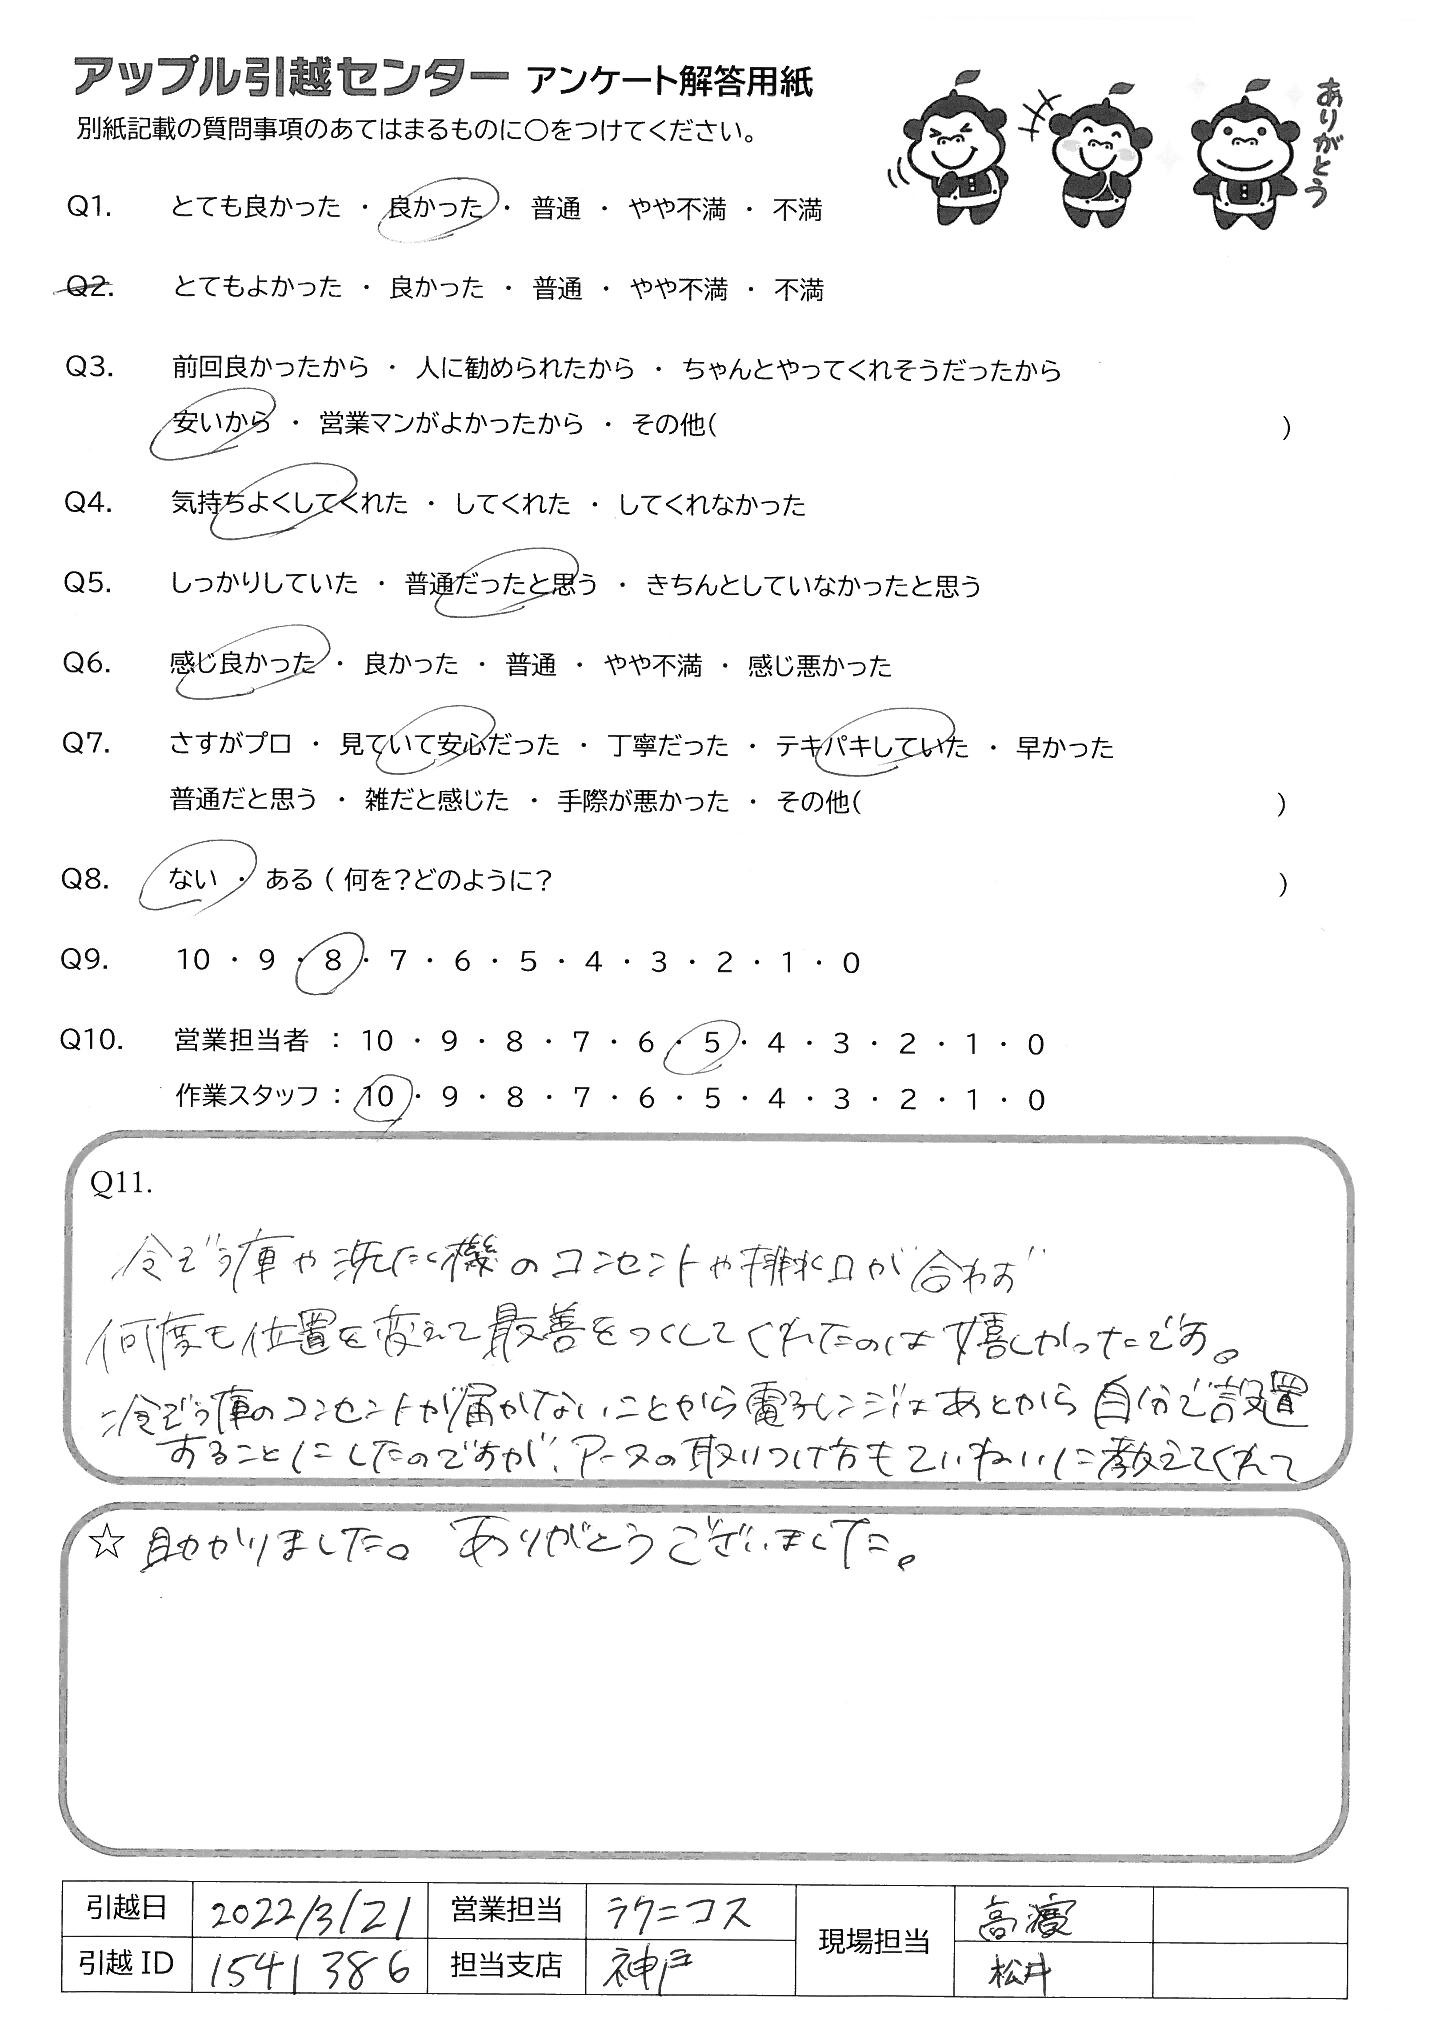 アップル引越センター アンケート解答用紙
別紙記載の質問事項のあてはまるものに○をつけてください。
ありがとう
Q1. とても良かった ・ 良かった ・ 普通 ・ やや不満 ・ 不満
Q2. とてもよかった ・ 良かった ・ 普通 ・ やや不満 ・ 不満
Q3. 前回良かったから ・ 人に勧められたから ・ ちゃんとやってくれそうだったから
安いから ・ 営業マンがよかったから ・ その他( )
Q4. 気持ちよくしてくれた ・ してくれた ・ してくれなかった
Q5. しっかりしていた ・ 普通だったと思う ・ きちんとしていなかったと思う
Q6. 感じ良かった ・ 良かった ・ 普通 ・ やや不満 ・ 感じ悪かった
Q7. さすがプロ ・ 見ていて安心だった ・ 丁寧だった ・ テキパキしていた ・ 早かった
普通だと思う ・ 雑だと感じた ・ 手際が悪かった ・ その他( )
Q8. ない ・ ある ( 何を?どのように? )
Q9. 10 ・ 9 ・ 8 ・ 7 ・ 6 ・ 5 ・ 4 ・ 3 ・ 2 ・ 1 ・ 0
Q10. 営業担当者 : 10 ・ 9 ・ 8 ・ 7 ・ 6 ・ 5 ・ 4 ・ 3 ・ 2 ・ 1 ・ 0
作業スタッフ : 10 ・ 9 ・ 8 ・ 7 ・ 6 ・ 5 ・ 4 ・ 3 ・ 2 ・ 1 ・ 0
Q11.
冷ぞう庫や洗たく機のコンセントや排水口が合わず
何度も位置を変えて最善をつくしてくれたのは嬉しかったです。
冷ぞう庫のコンセントが届かないことから電子レンジはあとから自分で設置
することにしたのですが、アースの取りつけ方もていねいに教えてくれて
☆助かりました。ありがとうございました。
引越日 2022/3/21 営業担当 ラクニコス 現場担当 高
引越ID 1541386 担当支店 神戸 松井